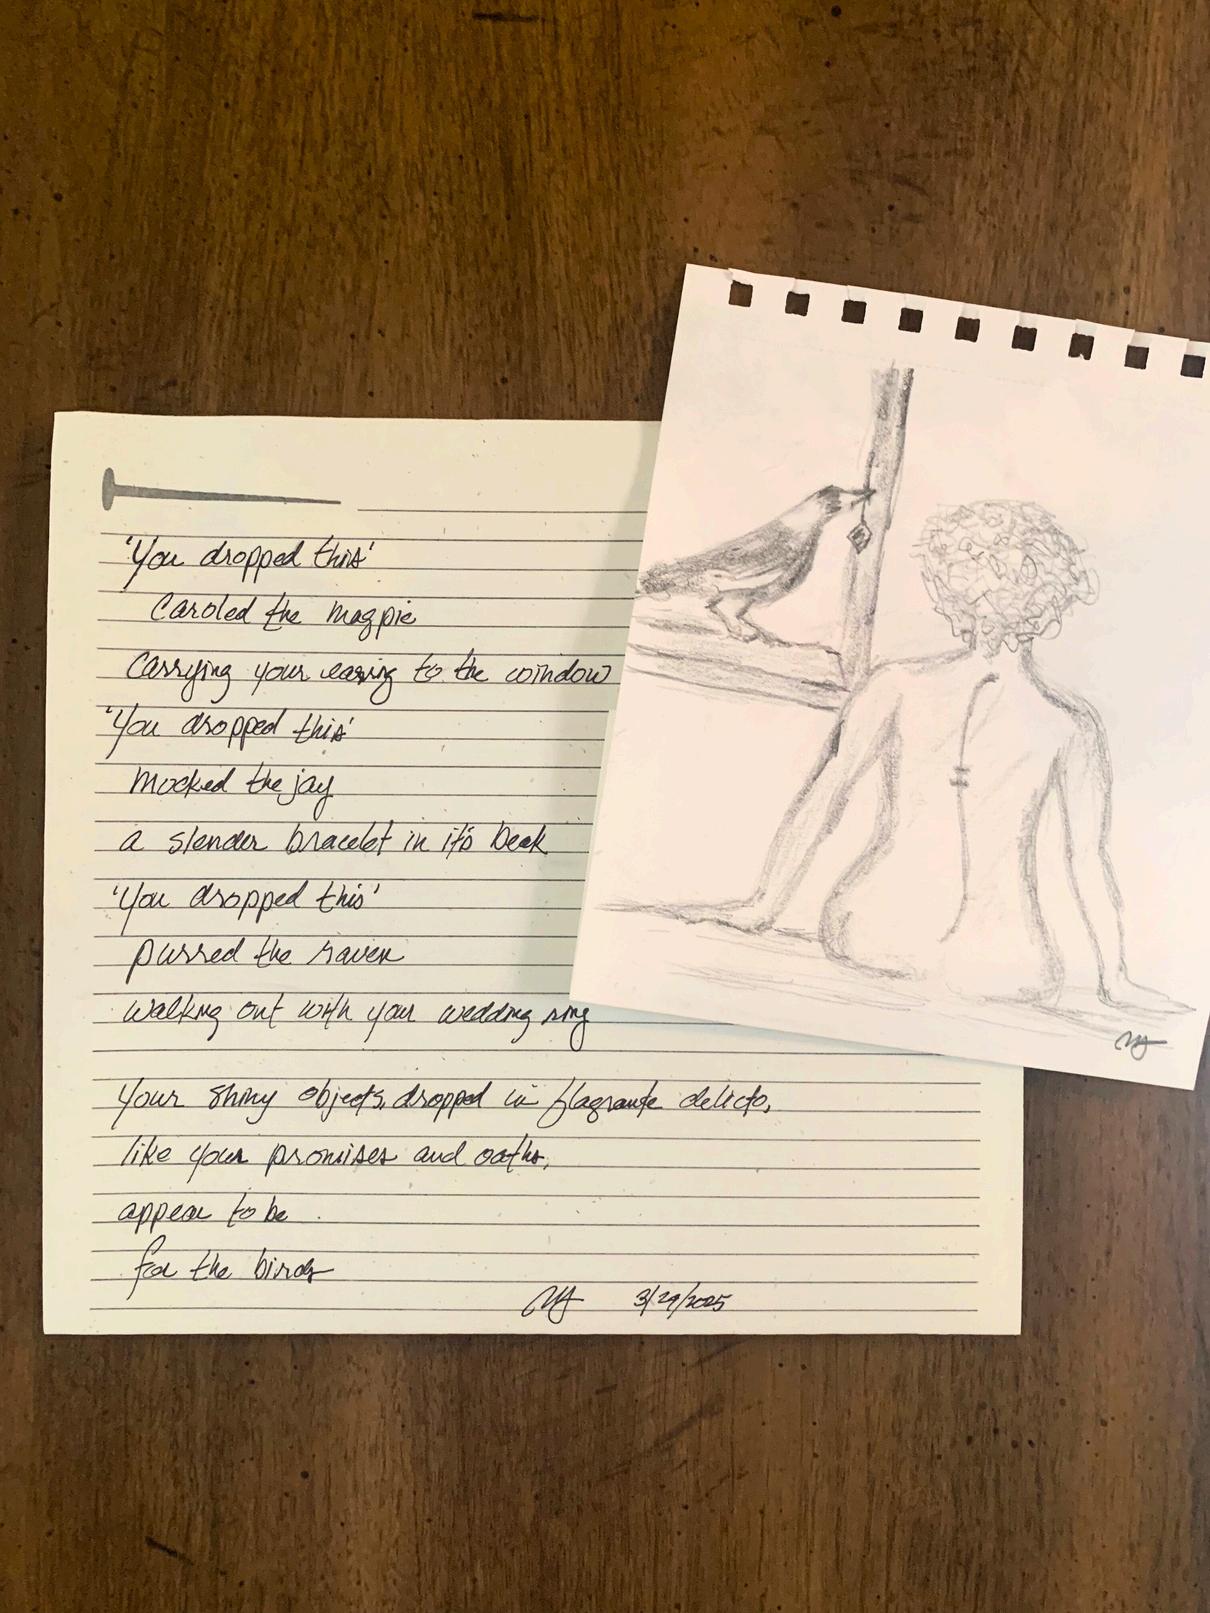 'You dropped this'
caroled the magpie
carrying your earing to the window
'You dropped this'
mocked the jay
a slender bracelet in it's beak
'You dropped this'
purred the raven
walking out with your wedding ring
Your shiny objects, dropped in flagrante delicto,
like your promises and oaths,
appear to be
for the birds
3/29/2025